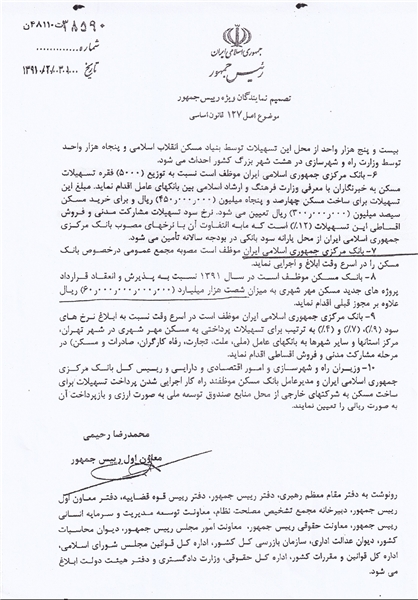 ۳۸۵۹۰/ت۴۸۱۱۰ن
شماره
تاریخ ۱۳۹۱/۰۲/۰۳
جمهوری اسلامی ایران
رئیس جمهور
تصمیم نمایندگان ویژه رییس جمهور
موضوع اصل ۱۲۷ قانون اساسی
بیست و پنج هزار واحد از محل این تسهیلات توسط بنیاد مسکن انقلاب اسلامی و پنجاه هزار واحد
توسط وزارت راه و شهرسازی در هشت شهر بزرگ کشور احداث می شود.
۶- بانک مرکزی جمهوری اسلامی ایران موظف است نسبت به توزیع (۵۰۰۰) فقره تسهیلات
مسکن به خبرنگاران با معرفی وزارت فرهنگ و ارشاد اسلامی بین بانکهای عامل اقدام نماید. مبلغ این
تسهیلات برای ساخت مسکن چهارصد و پنجاه میلیون (۴۵۰٫۰۰۰٫۰۰۰) ریال و برای خرید مسکن
سیصد میلیون (۳۰۰٫۰۰۰٫۰۰۰) ریال تعیین می شود. نرخ سود تسهیلات مشارکت مدنی و فروش
اقساطی این تسهیلات (۱۲٪) است که مابه التفاوت آن با نرخهای مصوب بانک مرکزی
جمهوری اسلامی ایران از محل یارانه سود بانکی در بودجه سالانه تأمین می شود.
۷- بانک مرکزی جمهوری اسلامی ایران موظف است مصوبه مجمع عمومی درخصوص بانک
مسکن را در اسرع وقت ابلاغ و اجرایی نماید.
۸- بانک مسکن موظف است در سال ۱۳۹۱ نسبت به پذیرش و انعقاد قرارداد
پروژه های جدید مسکن مهر شهری به میزان شصت هزار میلیارد (۶۰٫۰۰۰٫۰۰۰٫۰۰۰٫۰۰۰) ریال
علاوه بر مجوز قبلی اقدام نماید.
۹- بانک مرکزی جمهوری اسلامی ایران موظف است در اسرع وقت نسبت به ابلاغ نرخ های
سود (۹٪)، (۷٪) و (۴٪) به ترتیب برای تسهیلات پرداختی به مسکن مهر شهری در شهر تهران،
مرکز استانها و سایر شهرها به بانکهای عامل (ملی، ملت، تجارت، رفاه کارگران، صادرات و مسکن) در
مرحله مشارکت مدنی و فروش اقساطی اقدام نماید.
۱۰- وزیران راه و شهرسازی و امور اقتصادی و دارایی و رییس کل بانک مرکزی
جمهوری اسلامی ایران و مدیرعامل بانک مسکن موظفند راه کار اجرایی شدن پرداخت تسهیلات برای
ساخت مسکن به شرکتهای خارجی از محل منابع صندوق توسعه ملی به صورت ارزی و بازپرداخت آن
به صورت ریالی را تعیین نمایند.
محمدرضا رحیمی
معاون اول رییس جمهور
رونوشت به دفتر مقام معظم رهبری، دفتر رییس جمهور، دفتر رییس قوه قضاییه، دفتر معاون اول
رییس جمهور، دبیرخانه مجمع تشخیص مصلحت نظام، معاونت توسعه مدیریت و سرمایه انسانی
رییس جمهور، معاونت حقوقی رییس جمهور، معاونت امور مجلس رییس جمهور، دیوان محاسبات
کشور، دیوان عدالت اداری، سازمان بازرسی کل کشور، اداره کل قوانین مجلس شورای اسلامی،
اداره کل قوانین و مقررات کشور، اداره کل حقوقی، وزارت دادگستری و دفتر هیئت دولت ابلاغ
می شود.